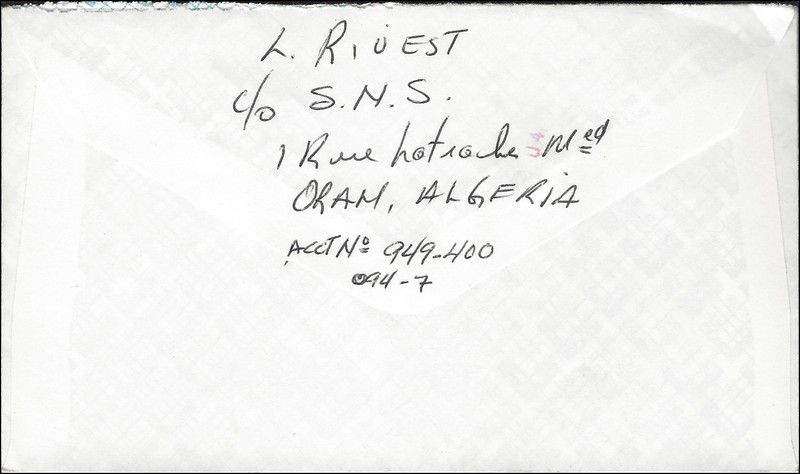 L. RIVEST
c/o S.N.S.
1 Rue hatrache Med
ORAN, ALGERIA
ACCT No 949-400
094-7